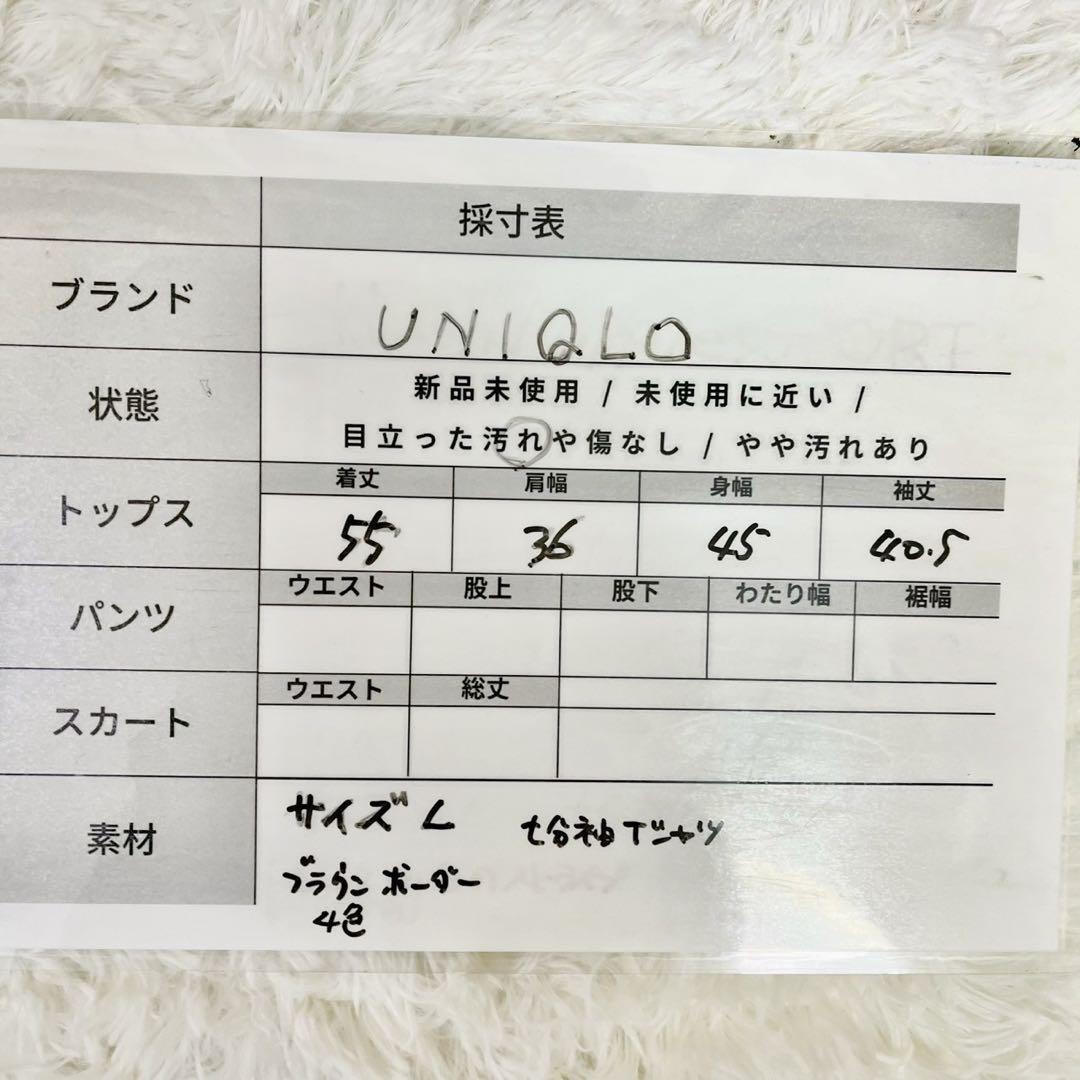 採寸表
ブランド
UNIQLO
状態
新品未使用 / 未使用に近い /
目立った汚れや傷なし / やや汚れあり
トップス
着丈 肩幅 身幅 袖丈
55 36 45 40.5
パンツ
ウエスト 股上 股下 わたり幅 裾幅
スカート
ウエスト 総丈
素材
サイズ L 七分袖Tシャツ
ブラウン ボーダー
4色